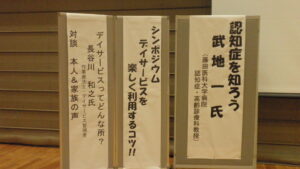 認知症を知ろう
武地 一 氏
(藤田医科大学病院
認知症・高齢診療科教授)
シンポジウム
デイサービスを
楽しく利用するコツ!!
デイサービスってどんな所?
長谷川 和之氏
対談 本人&家族の声